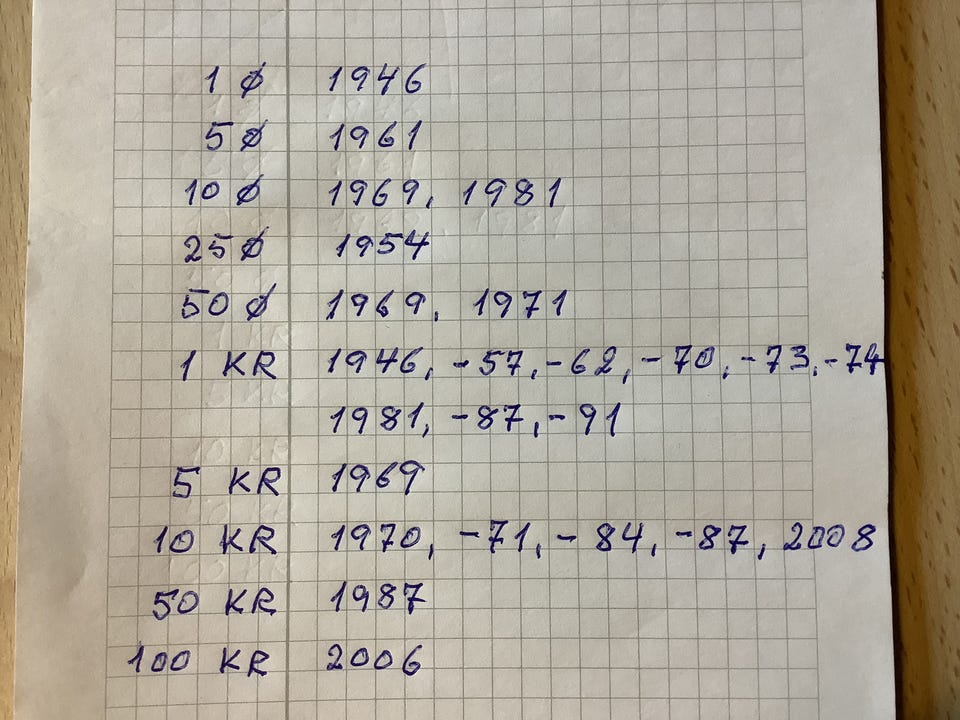 1 Ø 1946
5 Ø 1961
10 Ø 1969, 1981
25 Ø 1954
50 Ø 1969, 1971
1 KR 1946, -57, -62, -70, -73, -74
1981, -87, -91
5 KR 1969
10 KR 1970, -71, - 84, -87, 2008
50 KR 1987
100 KR 2006